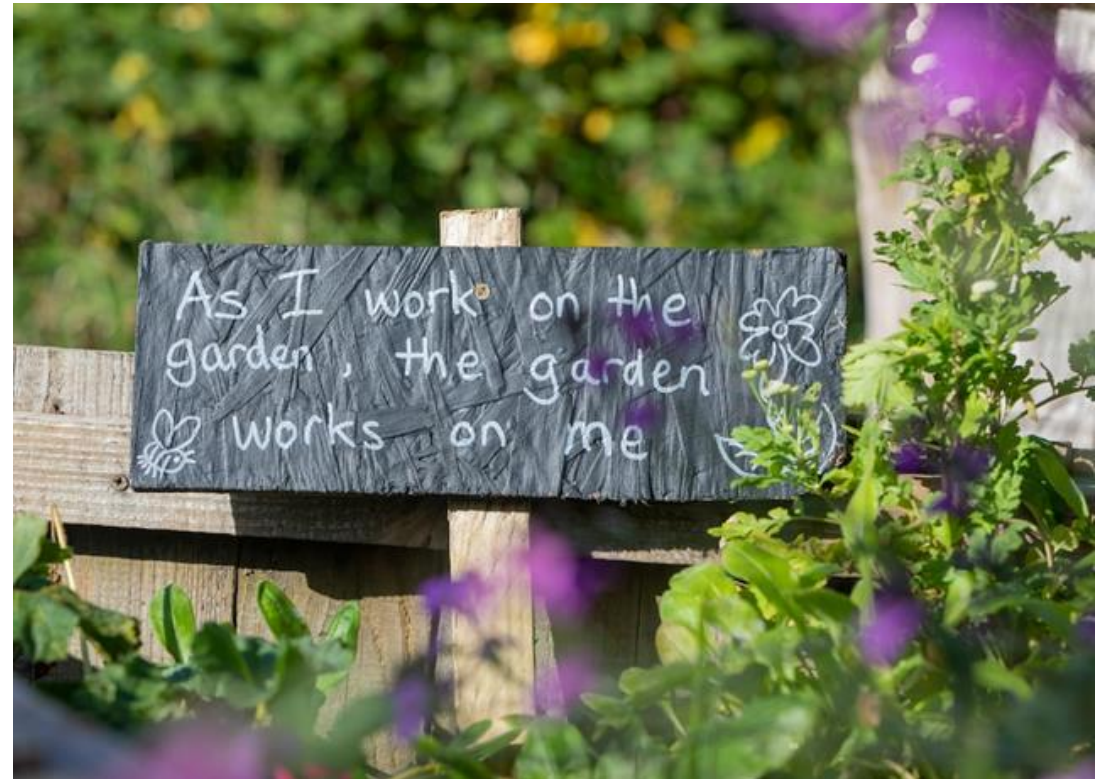 As I work on the
garden, the garden
works on me